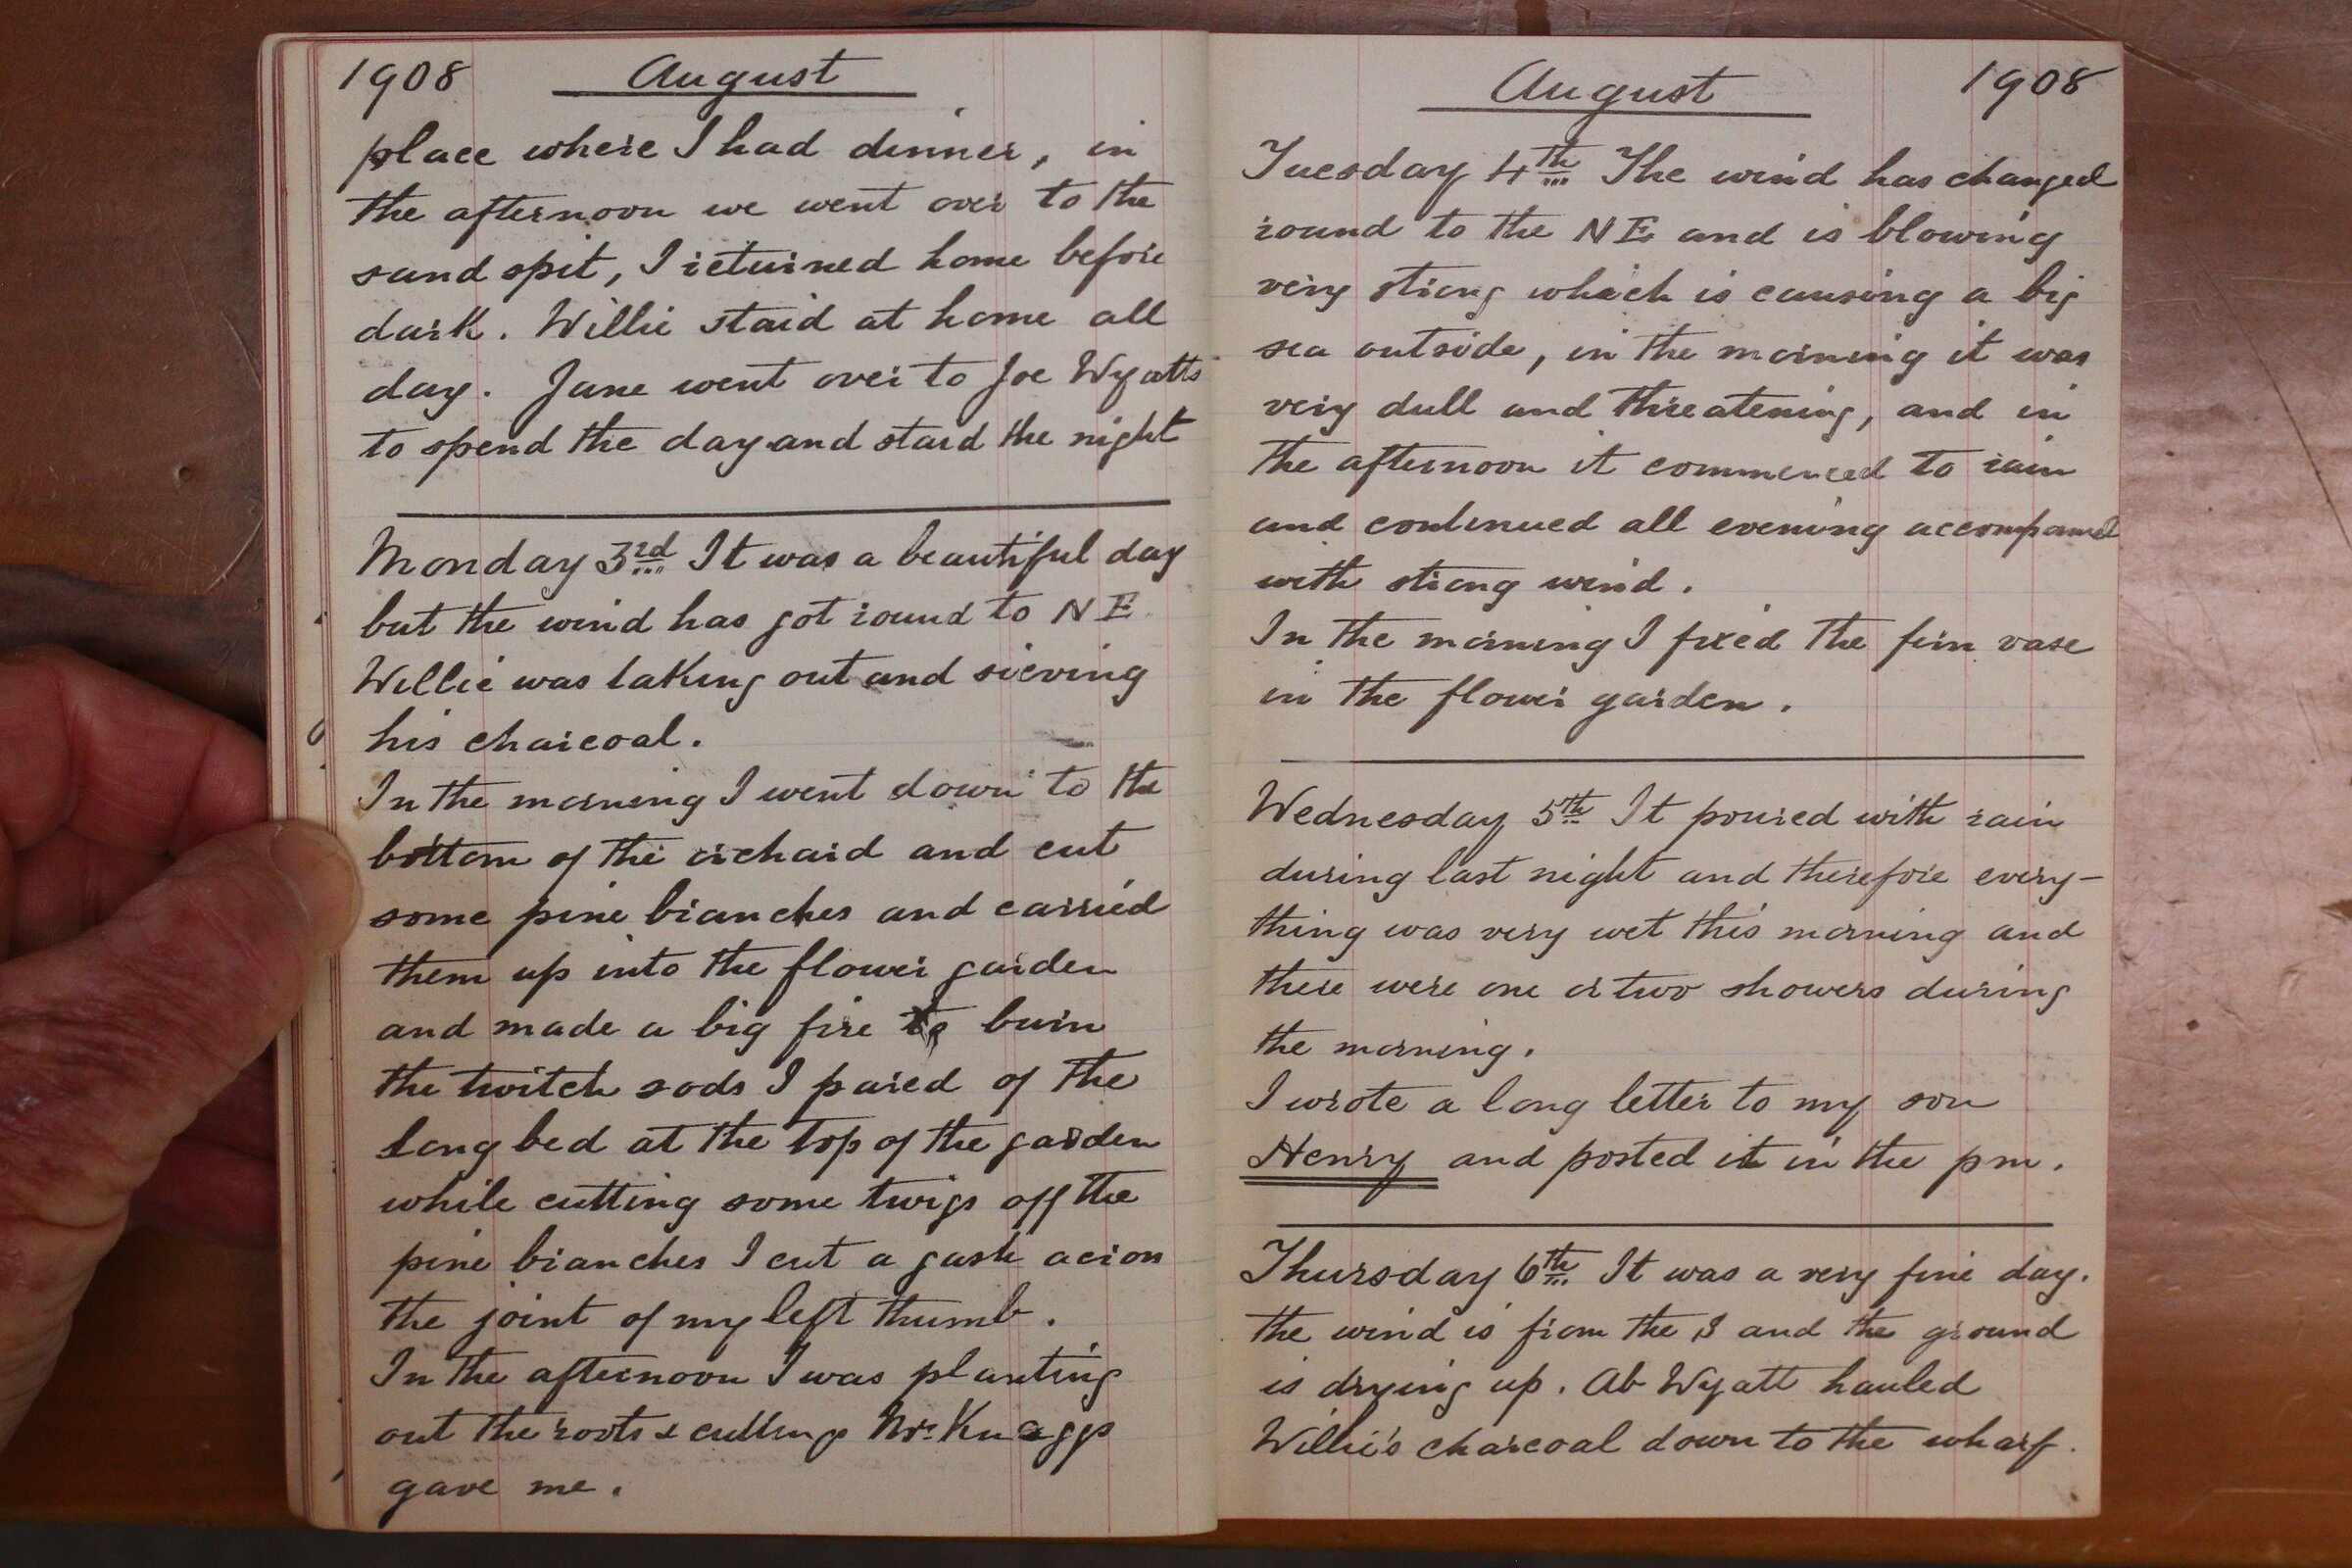 1908 August
place where I had dinner, in
the afternoon we went over to the
sand spit, I returned home before
dark. Willie staid at home all
day. Jane went over to Joe Wyatts
to spend the day and staid the night
Monday 3rd It was a beautiful day
but the wind has got round to NE
Willie was taking out and sieving
his charcoal.
In the morning I went down to the
bottom of the orchard and cut
some pine branches and carried
them up into the flower garden
and made a big fire to burn
the twitch sods I pared of the
long bed at the top of the garden
while cutting some twigs off the
pine branches I cut a gash across
the joint of my left thumb.
In the afternoon I was planting
out the roots & cuttings Mrs Knaggs
gave me.
August 1908
Tuesday 4th The wind has changed
round to the NE and is blowing
very strong which is causing a big
sea outside, in the morning it was
very dull and threatening, and in
the afternoon it commenced to rain
and continued all evening accompanied
with strong wind.
In the morning I fixed the fern vase
in the flower garden.
Wednesday 5th It poured with rain
during last night and therefore every-
thing was very wet this morning and
there were one or two showers during
the morning.
I wrote a long letter to my son
Henry and posted it in the pm.
Thursday 6th It was a very fine day.
the wind is from the S and the ground
is drying up. Ab Wyatt hauled
Willie's charcoal down to the wharf.